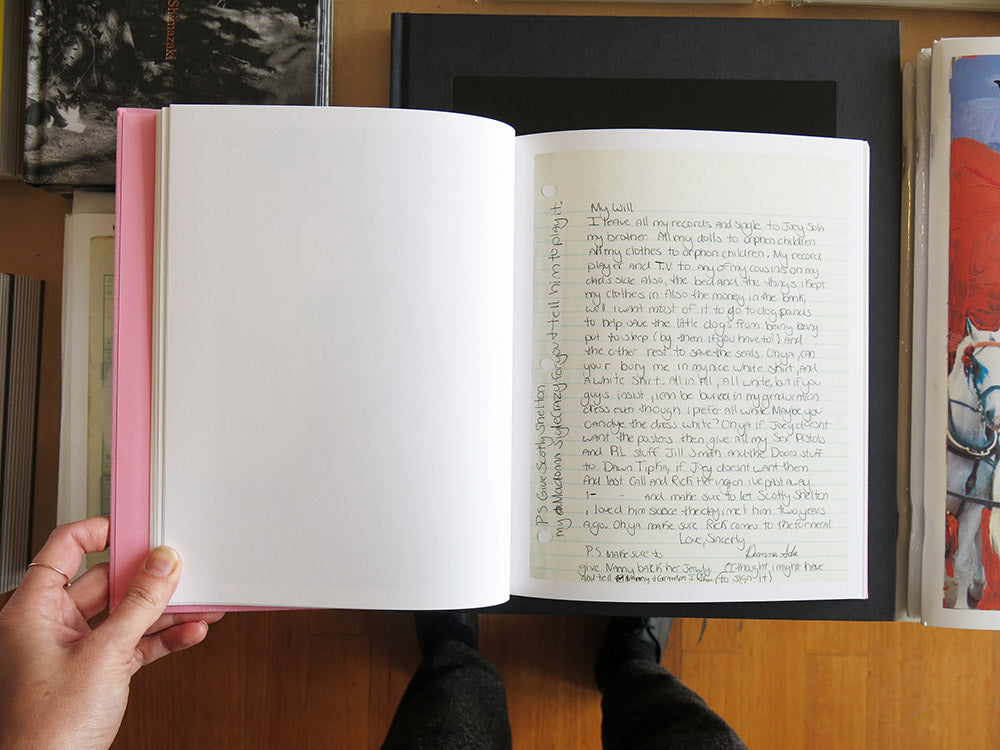 Shimazaki
My Will
I leave all my records and single to Joey Sola
my brother. All my dolls to orphon children
All my clothes to orphon children. My record
player and T.V. to any of my cousins on my
dad's side Also, the bed and the things i kept
my clothes in. Also the money in the bank,
well i want most of it to go to dog pounds
to help save the little dogs from being being
put to sleep (by them if you have to!) and
the other rest to save the seals. Oh ya, can
you bury me in my nice white shirt, and
a white skirt. All in All, All white, but if you
guys insist, i can be buried in my graduration
dress even though i prefer all white Maybe you
can dye the dress white? Oh ya if Joey doesnt
want the posters then give all my Sex Pistols
and PiL stuff Jill Smith and the Doors stuff
to Dawn if Joey doesnt want them
And last Call and Rick i've past away,
1- - and make sure to let Scotty Shelton
i loved him since the day i met him two years
Ago. Oh ya make sure Rick comes to the funeral
Love, Sincerly
P.S. make sure to
give Nanny back her Jewly. (I thought i might have
and tell Nanny + Grandpa I (to sign it)
P.S Give Scotty Shelton
my Madonna single CRAZY for you + tell him to play it.